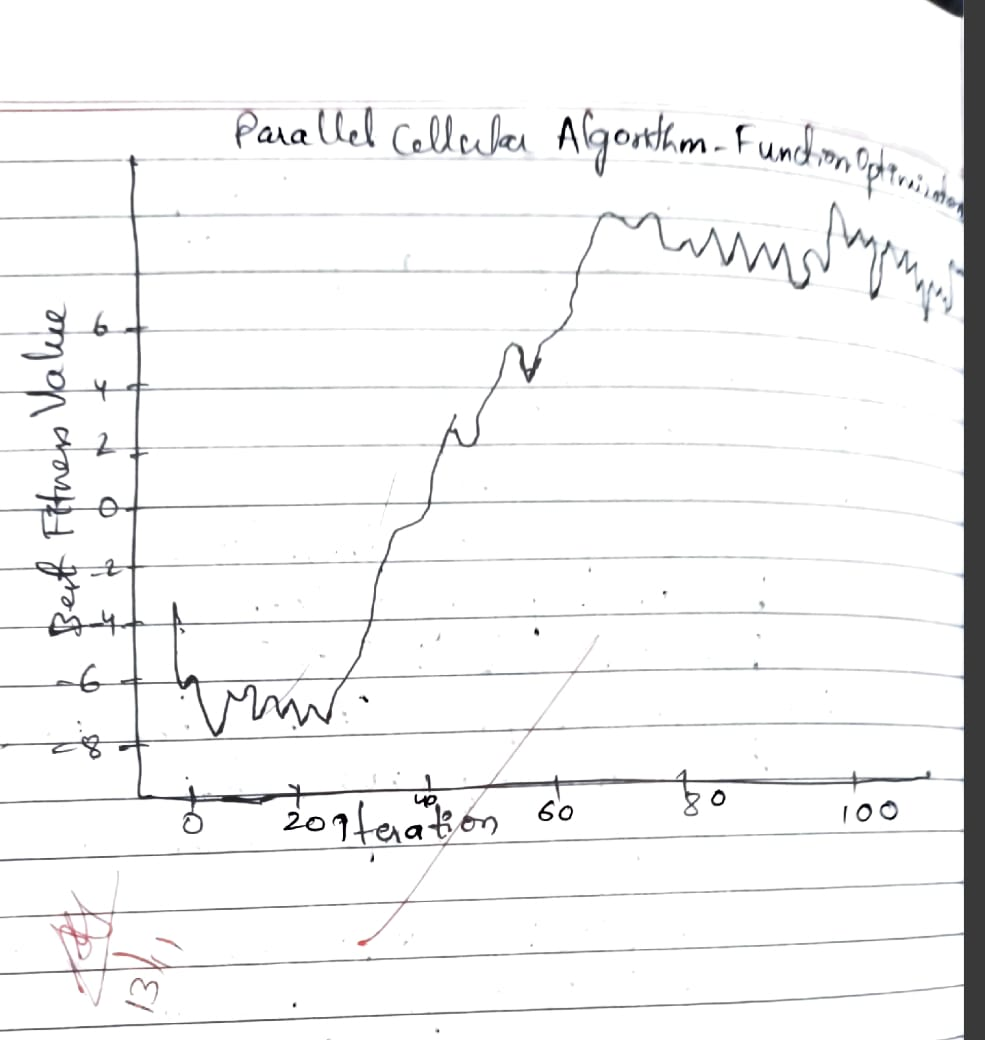 Parallel Cellular Algorithm - Function Optimization
Best Fitness Value
6
4
2
0
-2
-4
-6
-8
0 20 40 60 80 100
Iteration
13/11